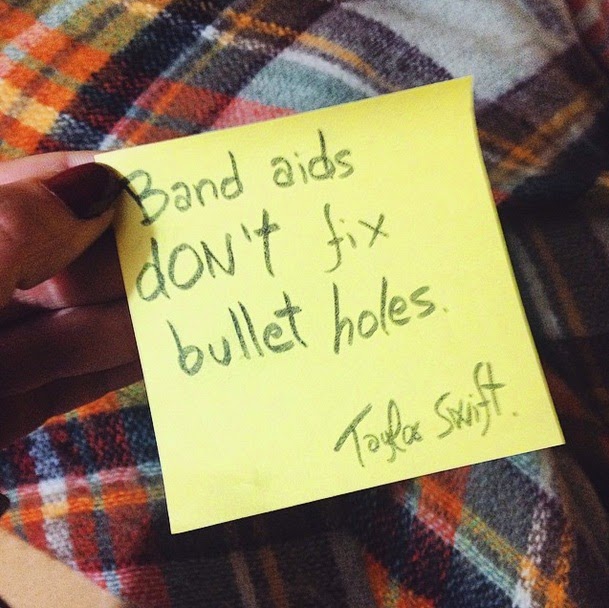 Band aids
dON't fix
bullet holes.
Taylor Swift.